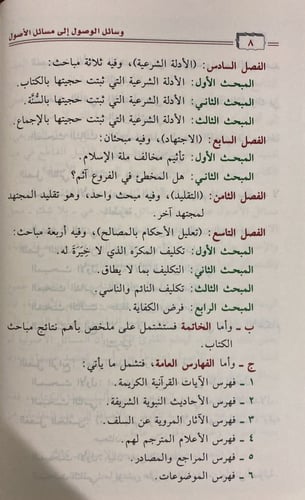 وسائل الوصول إلى مسائل الأصول
٨
الفصل السادس: (الأدلة الشرعية)، وفيه ثلاثة مباحث:
المبحث الأول: الأدلة الشرعية التي ثبتت حجيتها بالكتاب.
المبحث الثاني: الأدلة الشرعية التي ثبتت حجيتها بالسُّنَّة.
المبحث الثالث: الأدلة الشرعية التي ثبتت حجيتها بالإجماع.
الفصل السابع: (الاجتهاد)، وفيه مبحثان:
المبحث الأول: تأثيم مخالف ملة الإسلام.
المبحث الثاني: هل المخطئ في الفروع آثم؟
الفصل الثامن: (التقليد)، وفيه مبحث واحد، وهو تقليد المجتهد
لمجتهد آخر.
الفصل التاسع: (تعليل الأحكام بالمصالح)، وفيه أربعة مباحث:
المبحث الأول: تكليف المكرَه الذي لا خِيَرَةَ له.
المبحث الثاني: التكليف بما لا يطاق.
المبحث الثالث: تكليف النائم والناسي.
المبحث الرابع: فرض الكفاية.
ب ـ وأما الخاتمة فستشتمل على ملخص بأهم نتائج مباحث
الكتاب.
ج ـ وأما الفهارس العامة، فتشمل ما يأتي:
١ ـ فهرس الآيات القرآنية الكريمة.
٢ ـ فهرس الأحاديث النبوية الشريفة.
٣ ـ فهرس الآثار المروية عن السلف.
٤ ـ فهرس الأعلام المترجم لهم.
٥ ـ فهرس المراجع والمصادر.
٦ ـ فهرس الموضوعات.